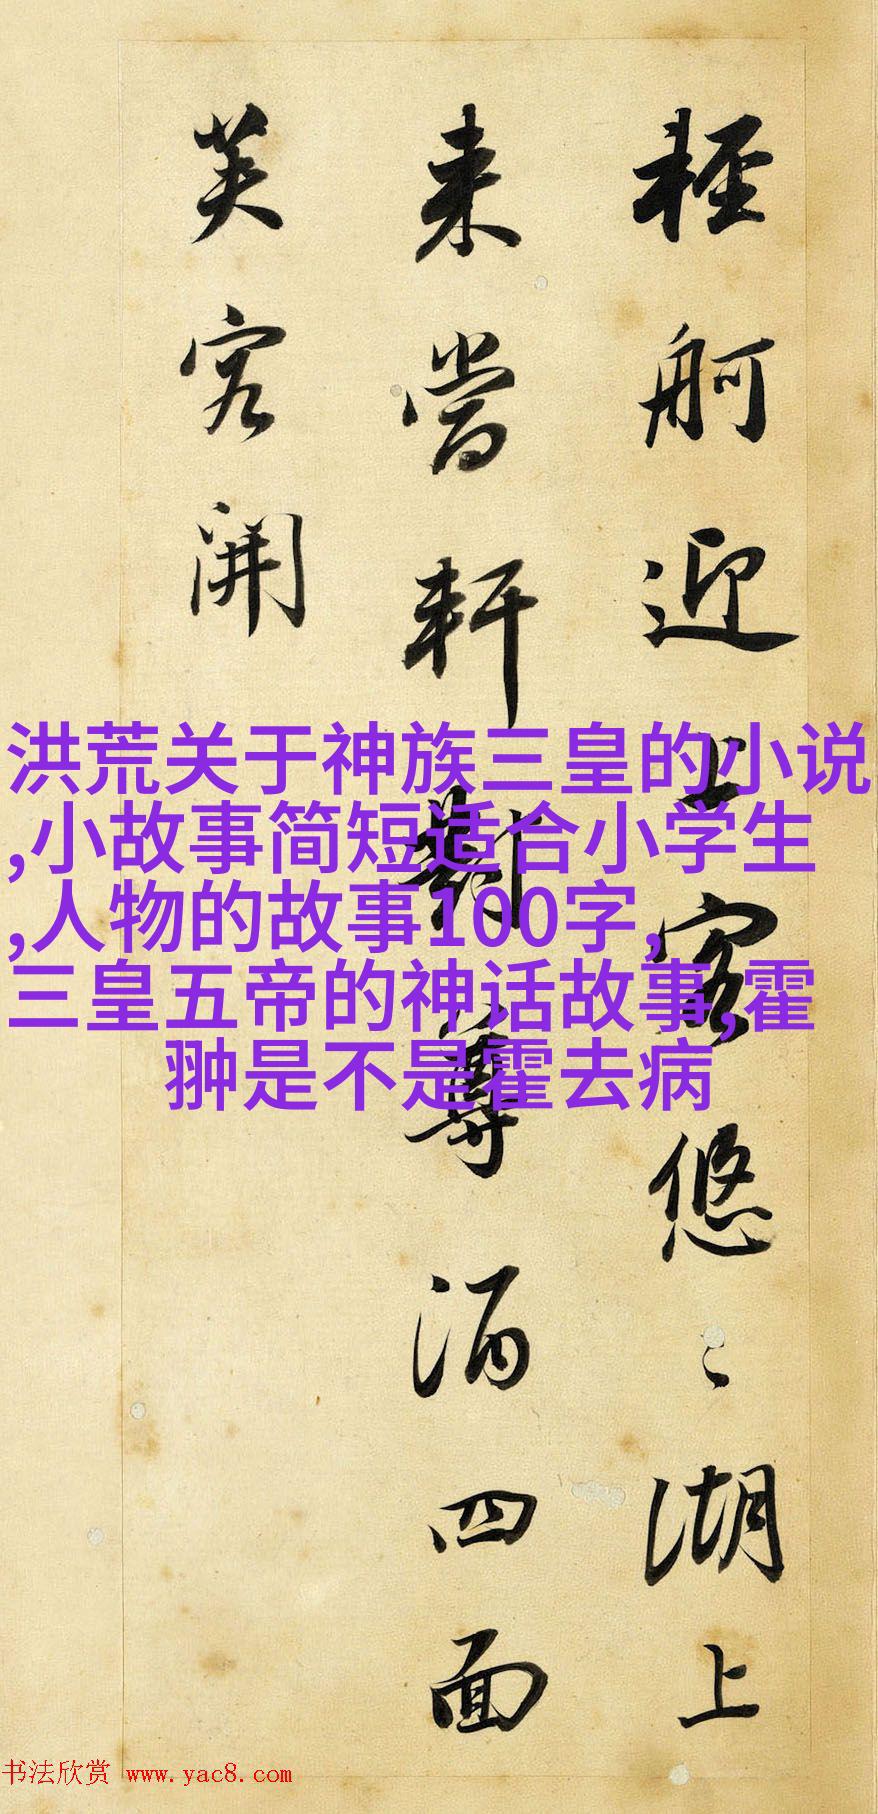 輕舸迎上客悠〻湖上
来當軒對尊酒四面
芙容開
洪荒关于神族三皇的小说
,小故事简短适合小学生
,人物的故事100字,
三皇五帝的神话故事,霍
翀是不是霍去病
书法欣赏 www.yac8.com